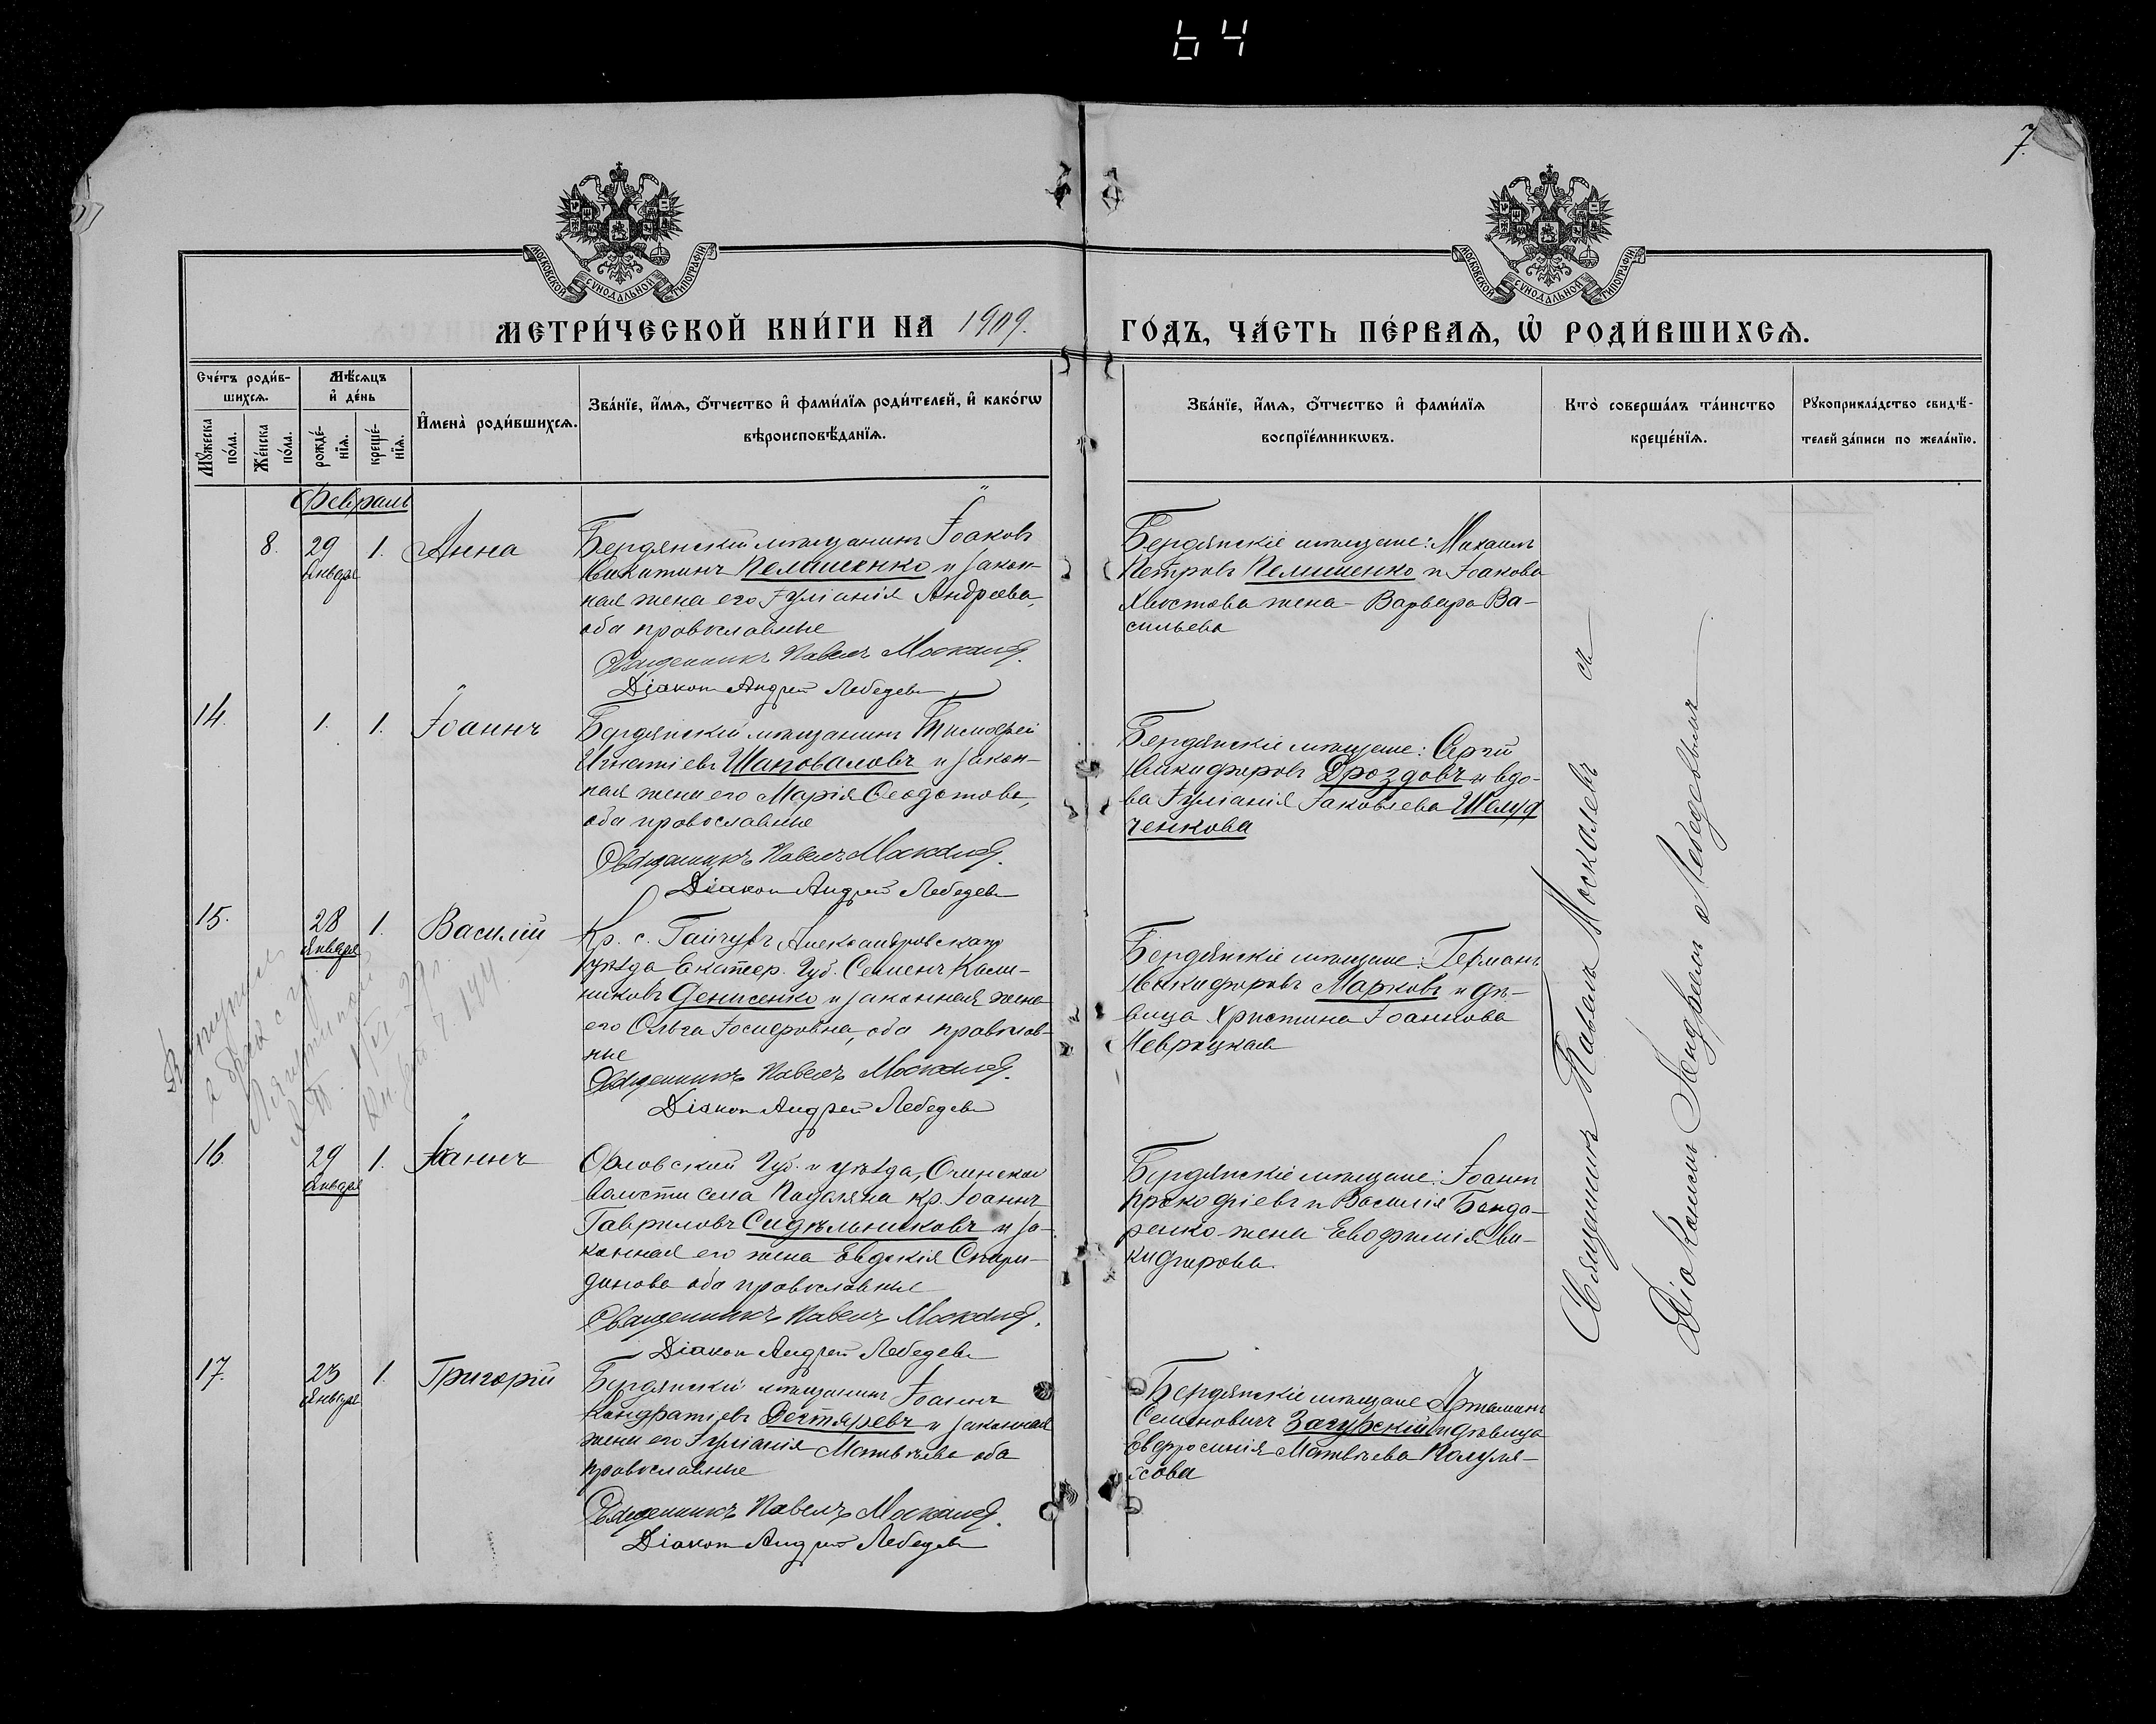 64
7.
МОСКОВСКОЙ СѴНОДАЛЬНОЙ ТИПОГРАФІИ
МОСКОВСКОЙ СѴНОДАЛЬНОЙ ТИПОГРАФІИ
МЕТРИ́ЧЕСКОЙ КНИ́ГИ НА 1909. ГО́ДЪ, ЧА́СТЬ ПЕ́РВАѦ, Ѡ҆ РОДИ́ВШИХСѦ.
Сче́тъ роди́в-
шихсѧ.
Мꙋ́жеска по́ла.
Же́нска по́ла.
Мѣ́сѧцъ
и҆ де́нь
рожде́-
нїѧ.
креще́-
нїѧ.
И҆мена̀ роди́вшихсѧ.
Зва́нїе, и҆́мѧ, ѻ҆́тчество и҆ фами́лїѧ роди́телей, и҆ како́гѡ
вѣроисповѣ́данїѧ.
Зва́нїе, и҆́мѧ, ѻ҆́тчество и҆ фами́лїѧ
воспрїе́мникѡвъ.
Кто̀ соверша́лъ та́инство
креще́нїѧ.
Рꙋкоприкла́дство свидѣ́-
телей за́писи по жела́нїю.
Февраль
8.
29
Января
1.
Анна
Бердянскій мѣщанинъ Іоаковъ
Никитинъ Пелишенко и закон-
ная жена его Іуліанія Андреева,
оба православные
Священникъ Павелъ Москалевъ.
Діаконъ Андрей Лебедевъ
Бердянскіе мѣщане: Михаилъ
Петровъ Пелишенко и Іоакова
Хвостова жена - Варвара Ва-
сильева
14.
1.
1.
Іоаннъ
Бердянскій мѣщанинъ Тимофей
Игнатіевъ Шаповаловъ и закон-
ная жена его Марія Ѳеодотова,
оба православные
Священникъ Павелъ Москалевъ.
Діаконъ Андрей Лебедевъ
Бердянскіе мѣщане: Сергій
Никифоровъ Дроздовъ и вдо-
ва Іуліанія Іаковлева Шелуд
ченкова
15.
28
Января
1.
Василій
Кр. с. Гайчувъ Александровскаго
уѣзда Екатер. Губ. Семенъ Кали-
никовъ Денисенко и законная жена
его Ольга Іосифовна, оба православ-
ные
Священникъ Павелъ Москалевъ.
Діаконъ Андрей Лебедевъ
Бердянскіе мѣщане: Германъ
Никифоровъ Марковъ и дѣ-
вица Христина Іоаннова
Неврицкая
16.
29
Января
1.
Іоаннъ
Орловской Губ. и уѣзда,
волости села кр. Іоаннъ
Гавриловъ Сидѣльниковъ и за-
конная его жена Евдокія Спири-
донова оба православные
Священникъ Павелъ Москалевъ.
Діаконъ Андрей Лебедевъ
Бердянскіе мѣщане: Іоаннъ
Прокофіевъ и Василія Бонда-
ренко жена Евфимія Ни-
кифорова.
17.
23
Января
1.
Григорій
Бердянскій мѣщанинъ Іоаннъ
Кондратіевъ Дегтяревъ и законная
жена его Іуліанія Матвѣева оба
православные
Священникъ Павелъ Москалевъ.
Діаконъ Андрей Лебедевъ
Бердянскіе мѣщане Артамонъ
Семеновичъ Загурскій и дѣвица
Евфросинія Матвѣева
Священникъ Павелъ Москалевъ съ
Діакономъ Андреемъ Лебедевымъ